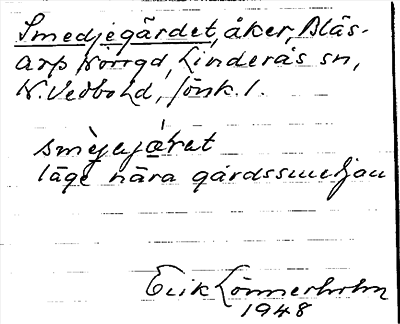 Smedjegärdet, åker, Bläs-
arp Norrgd, Linderås sn,
N. Vedbo hd, Jönk. l.
smèjejæ̀ret
läge nära gårdssmedjan
Erik Lönnerholm
1948